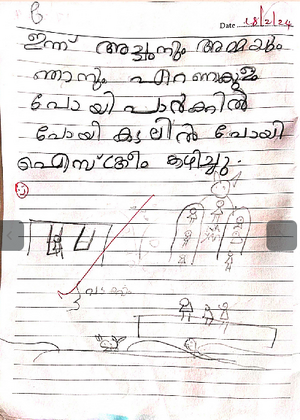 Date 18/2/24
ഇന്ന് അച്ചനും അമ്മയും
ഞാനും എറണകുളം
പോയി പാർക്കിൽ
പോയി കടലിൽ പോയി
ഐസ്ക്രീം കഴിച്ചു.